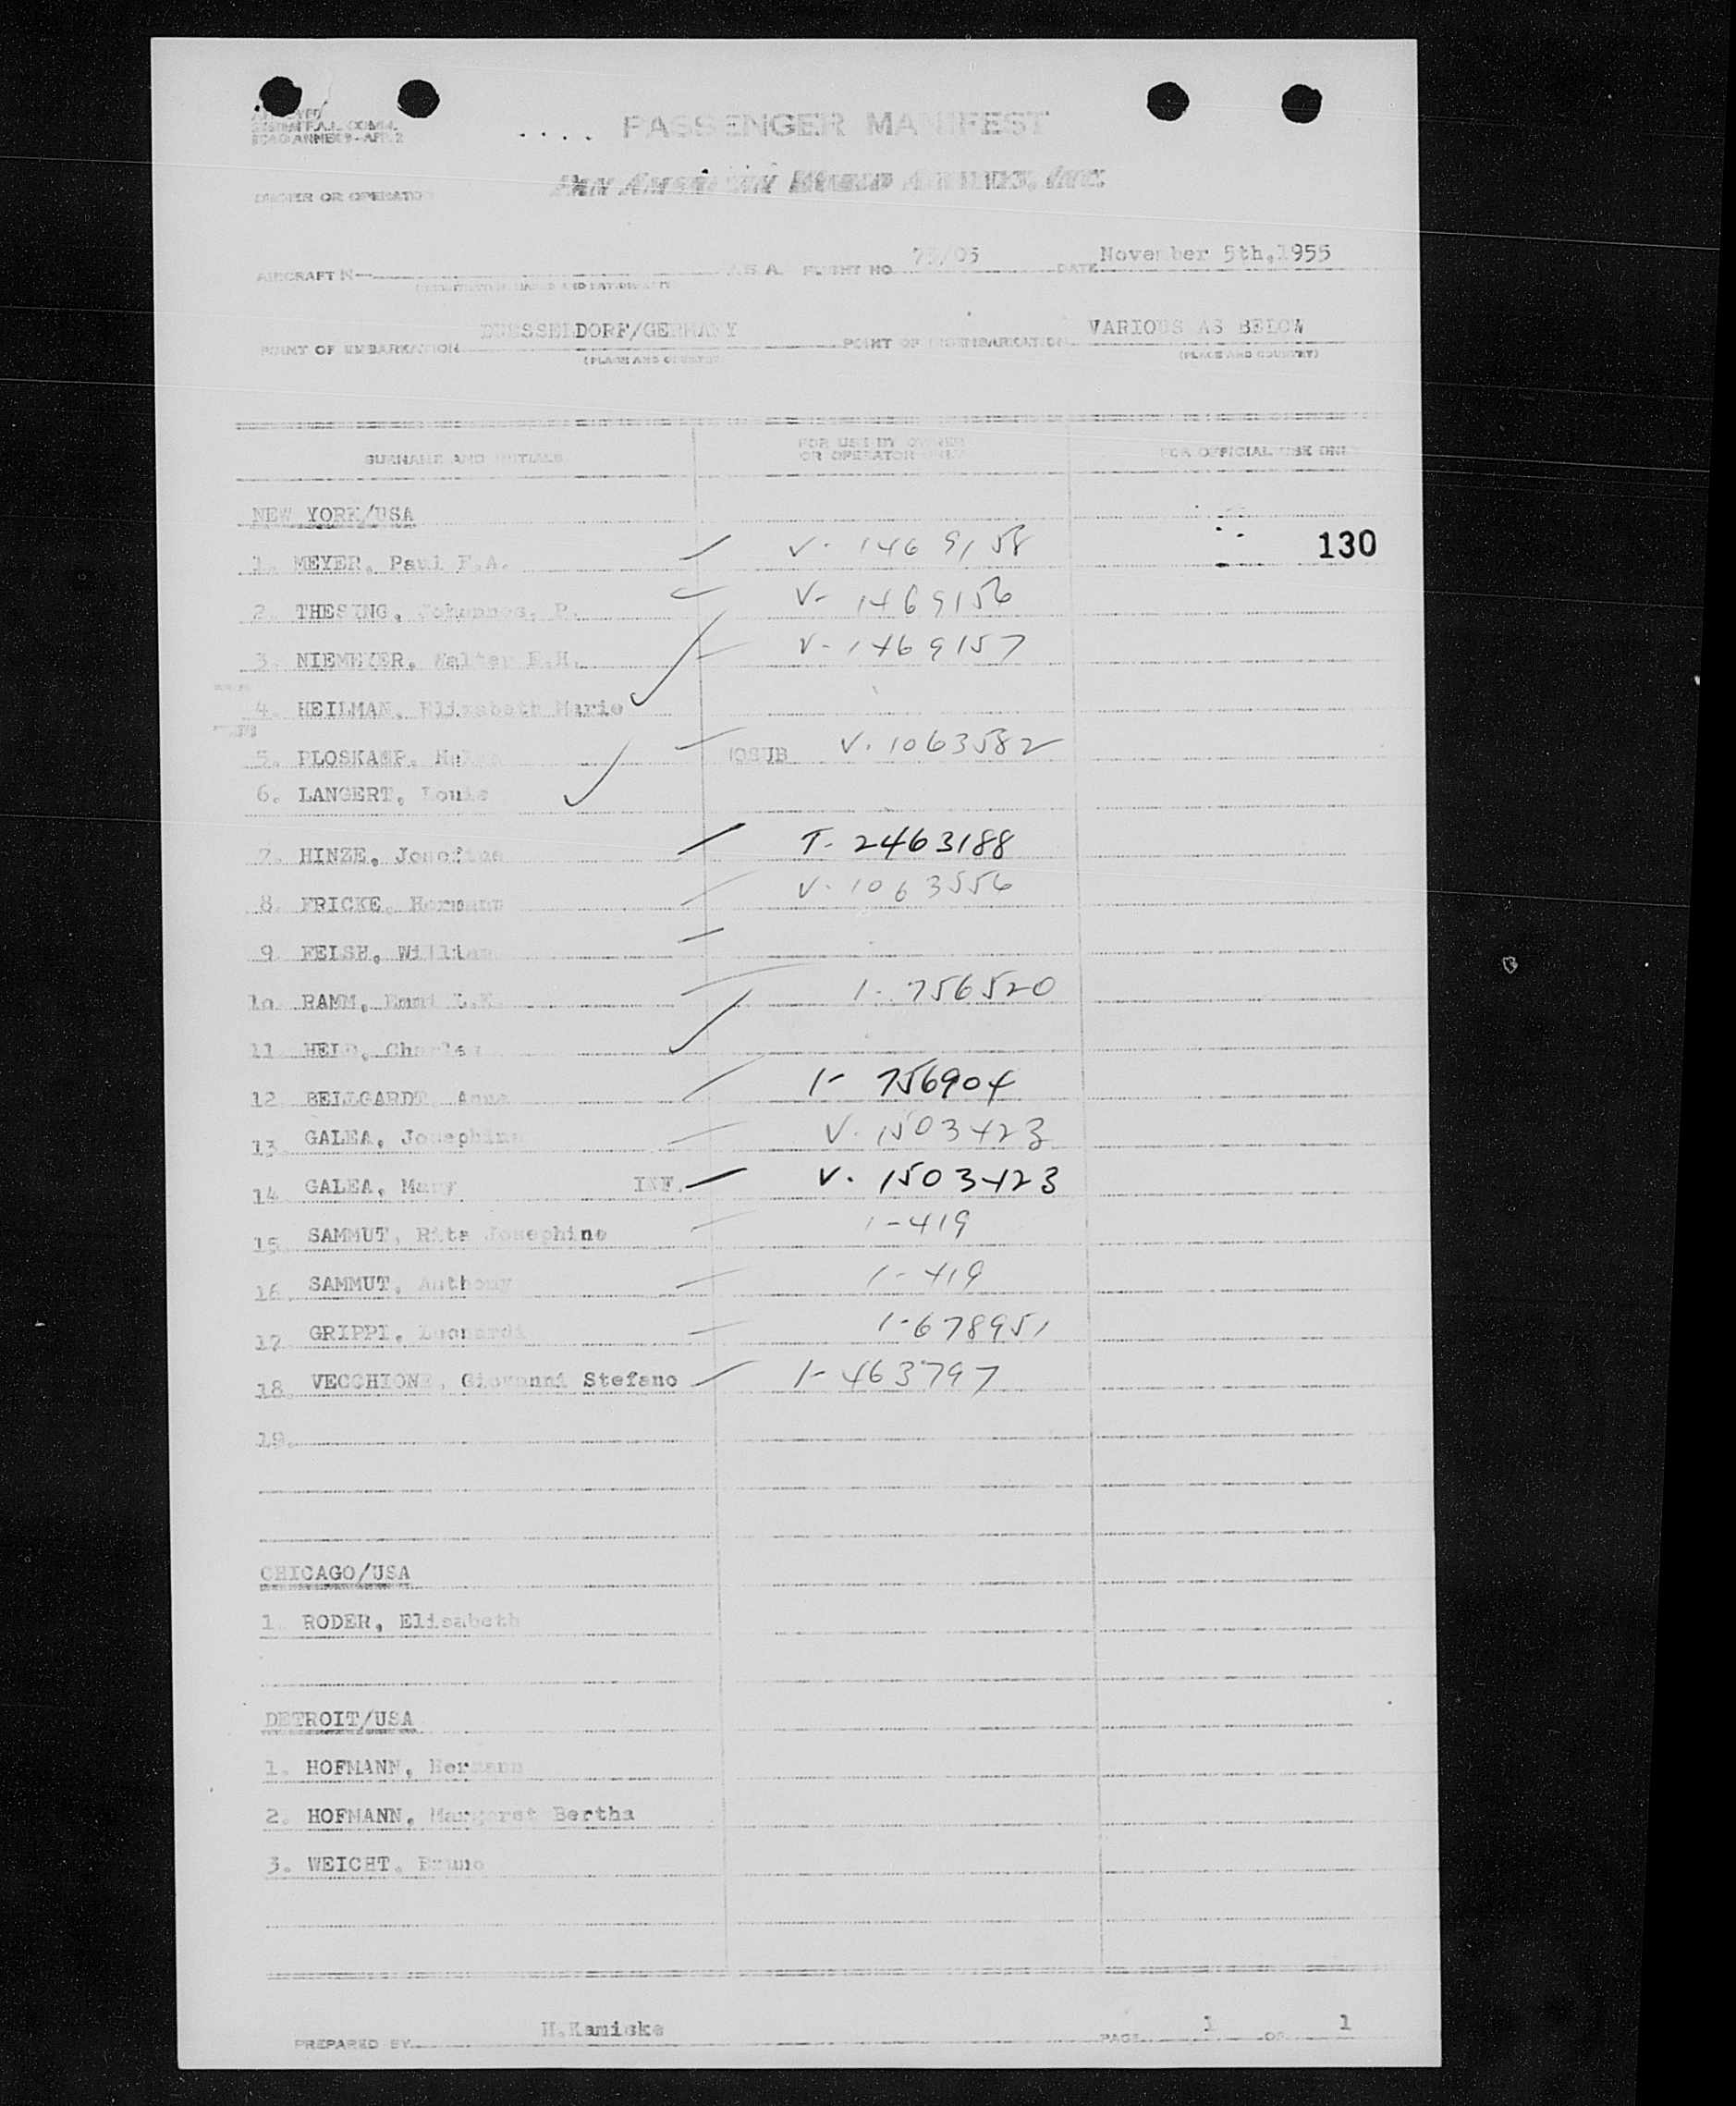 PASSENGER MANIFEST
PAN AMERICAN WORLD AIRWAYS, INC.
OWNER OR OPERATOR
AIRCRAFT N- FLIGHT NO. /05 DATE November 5th,1955
POINT OF EMBARKATION DUESSELDORF/GERMANY POINT OF DISEMBARKATION VARIOUS AS BELOW
(PLACE AND COUNTRY) (PLACE AND COUNTRY)
SURNAME AND INITIALS FOR USE BY OWNER OR OPERATOR ONLY FOR OFFICIAL USE ONLY
NEW YORK/USA
130
1. MEYER, Paul F.A. V- 1469158
2. THESING, Johannes, P. V- 1469156
3. NIEMEYER, Walter E.H. V- 1469157
4. HEILMAN, Elisabeth Marie
5. PLOSKAMP, NOSUB V. 1063582
6. LANGERT, Louis
7. HINZE, Josefine T- 2463188
8. FRICKE, Hermann V- 1063556
9 FEISH, William
10 RAMM, Emmi L.E. 1- 756520
11 HELD, Charles
12 BELLGARDT, Anna 1- 756904
13 GALEA, Josephine V. 1503423
14 GALEA, Mary INF. V. 1503423
15 SAMMUT, Rita Josephine 1-419
16 SAMMUT, Anthony 1-419
17 GRIPPI, Leonardi 1-678951
18 VECCHIONE, Giovanni Stefano 1-463797
19.
CHICAGO/USA
1 RODER, Elisabeth
DETROIT/USA
1. HOFMANN, Hermann
2. HOFMANN, Margaret Bertha
3. WEICHT, Bruno
PREPARED BY H.Kamiske PAGE 1 OF 1